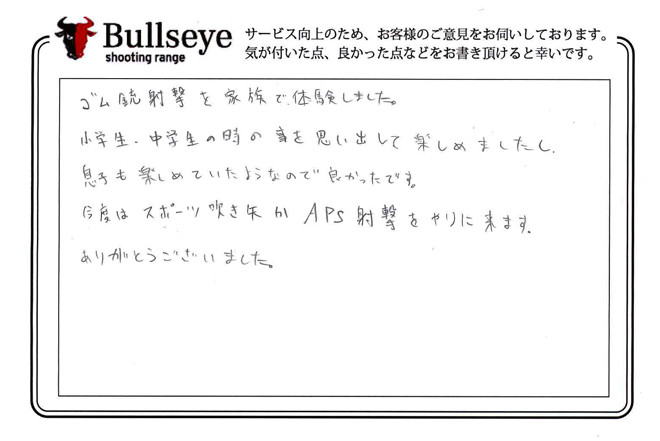 Bullseye
shooting range
サービス向上のため、お客様のご意見をお伺いしております。
気が付いた点、良かった点などをお書き頂けると幸いです。
ゴム銃射撃を家族で体験しました。
小学生、中学生の時の事を思い出して楽しめましたし、
息子も楽しめていたようなので良かったです。
今度はスポーツ吹き矢かAPS射撃をやりに来ます。
ありがとうございました。